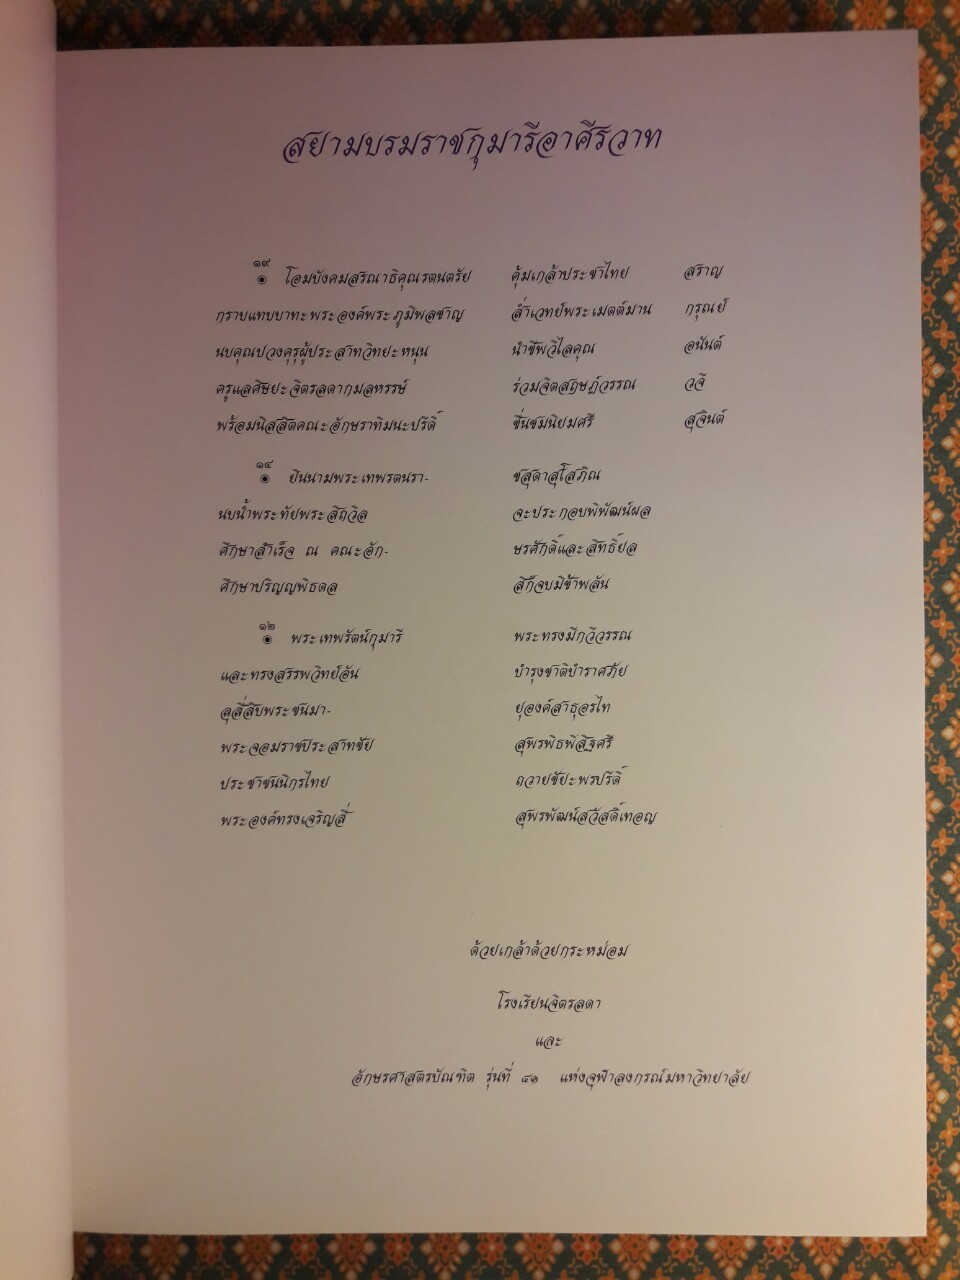 สยามบรมราชกุมารีอาศิรวาท
๑๙
๏ โอมบังคมสรณาธิคุณรตนตรัย คุ้มเกล้าประชาไทย สราญ
กรายแทบบาทะพระองค์พระภูมิพลชาญ ส่ำเวทย์พระเมตต์มาน กรุณย์
นบคุณปวงคุรุผู้ประสาทวิทยะหนุน นำชีพวิไลคุณ อนันต์
ครูแลศิษยะจิตรลดากมลหรรษ์ ร่วมจิตสฤษฎ์วรรณ วจี
พร้อมนิสสิตคณะอักษราทิมนะปรีดิ์ ชื่นชมนิยมศรี สุจินต์
๑๔
๏ ยินนามพระเทพรตนรา- ชสุดาสุโสภิณ
นบน้ำพระทัยพระสิถวิล จะประกอบพิพัฒน์ผล
ศึกษาสำเร็จ ณ คณะอัก- ษรศักดิ์และสิทธิ์ยล
ศึกษาปริญญพิธดล สิก็จบมิช้าพลัน
๑๒
๏ พระเทพรัตน์กุมารี พระทรงมีกวีวรรณ
และทรงสรรพวิทย์อัน บำรุงชาติบำราศภัย
ลุสี่สิบพระชนมา- ยุองค์สาธุอรไท
พระจอมราชประสาทชัย สุพรพิธพิสิฐศรี
ประชาชนนิกรไทย ถวายชัยะพรปรีดิ์
พระองค์ทรงเจริญสี่ สุพรพัฒน์สวัสดิ์เทอญ
ด้วยเกล้าด้วยกระหม่อม
โรงเรียนจิตรลดา
และ
อักษรศาสตรบัณฑิต รุ่นที่ ๔๑ แห่งจุฬาลงกรณ์มหาวิทยาลัย